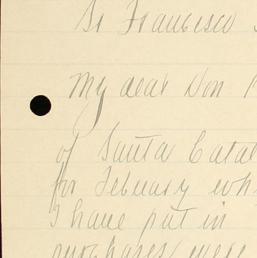 Sn Francisco
My dear Don
of Santa Catal
for February wh
I have put in
purchases were